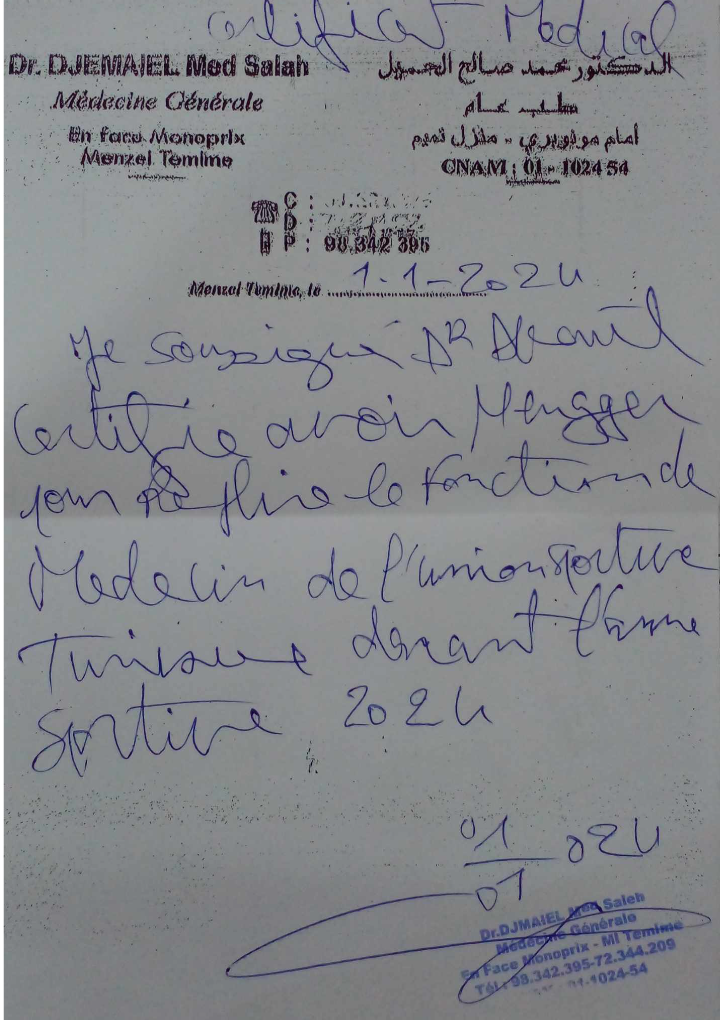 Certificat Medical
Dr. DJEMAIEL Med Salah
Médecine Générale
En face Monoprix
Menzel Temime
الدكتور محمد صالح الجميل
طب عام
أمام مونوبري - منزل تميم
CNAM : 01 - 1024 54
C :
D :
P : 98.342 395
Menzel Temime, le 1-1-2024
Je soussigné Dr
Certifie avoir
pour le Fonction de
Medecin de l'union sportive
Tunisienne durant l'anne
Sportive 2024
01/01 024
Dr.DJMAIEL Med Saleh
Médecine Générale
En Face Monoprix - Ml Temime
Tél : 98.342.395-72.344.209
01-1024-54